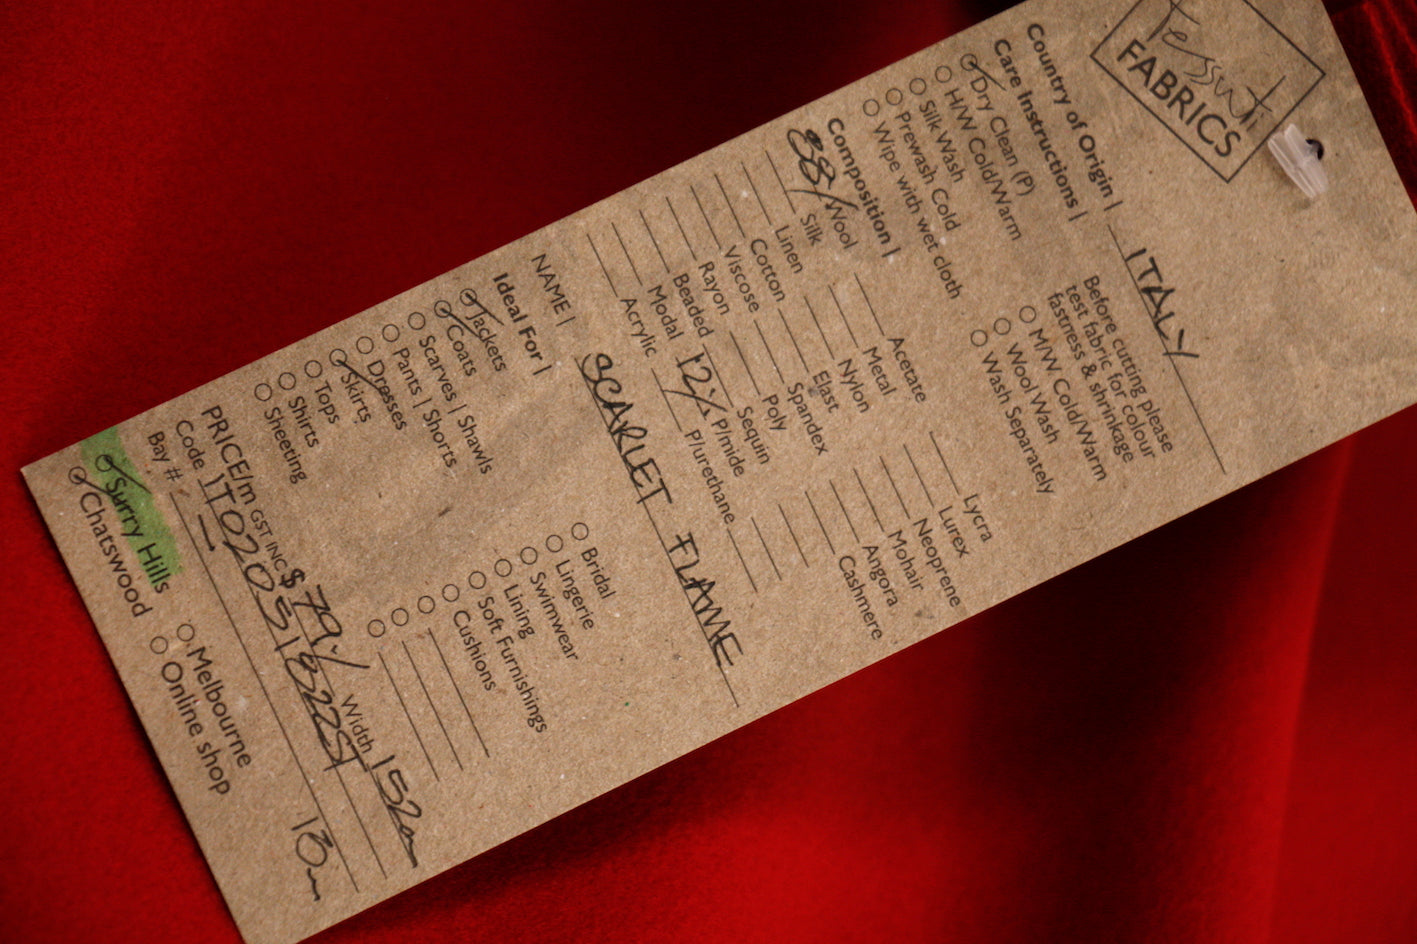 Tessuti
FABRICS
Country of Origin | ITALY
Care Instructions | Before cutting please
test fabric for colour
fastness & shrinkage
Dry Clean (P)
H/W Cold/Warm M/W Cold/Warm
Silk Wash Wool Wash
Prewash Cold Wash Separately
Wipe with wet cloth
Composition |
88% Wool Acetate Lycra
Silk Metal Lurex
Linen Nylon Neoprene
Cotton Elast Mohair
Viscose Spandex Angora
Rayon Poly Cashmere
Beaded Sequin
Modal 12% P/mide
Acrylic P/urethane
NAME | SCARLET FLAME
Ideal For |
Jackets Bridal
Coats Lingerie
Scarves | Shawls Swimwear
Pants | Shorts Lining
Dresses Soft Furnishings
Skirts Cushions
Tops
Shirts
Sheeting
PRICE/m GST INC $79./ Width 152cm
Code
Bay #
Surry Hills Melbourne
Chatswood Online shop